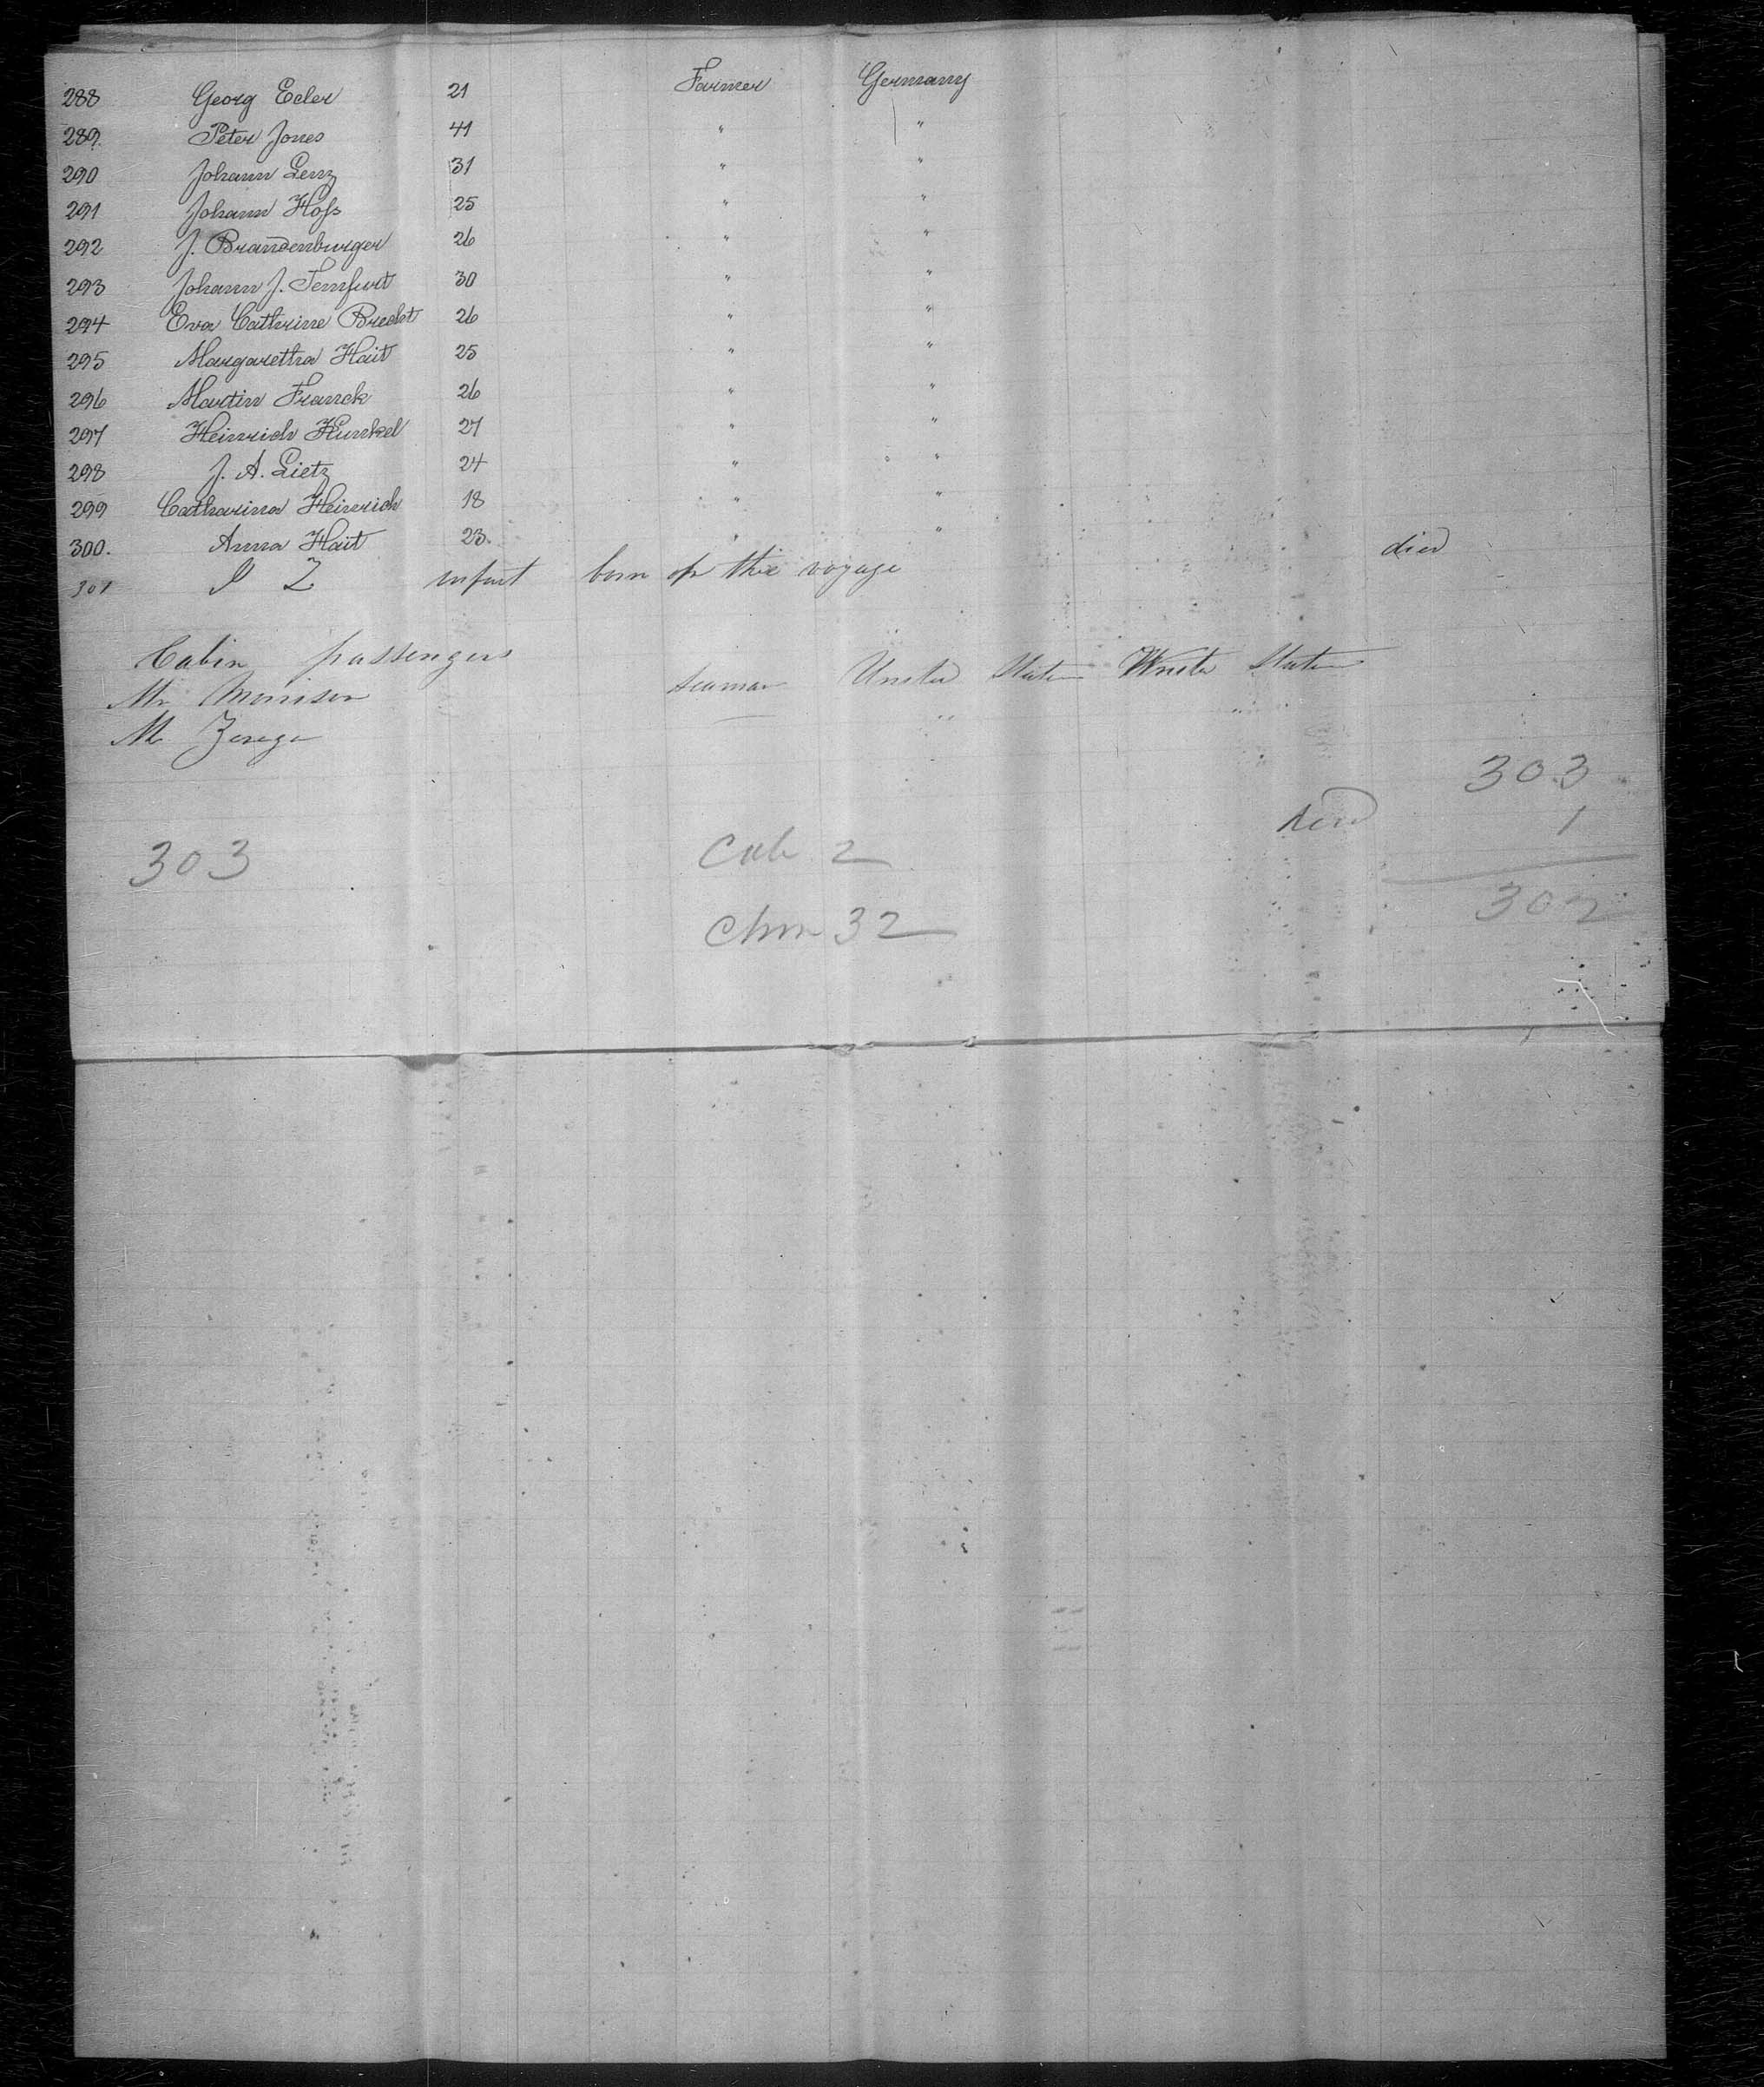 288 Georg Ecler 21 Farmer Germany
289. Peter Jones 41 " "
290 Johann Lenz 31 " "
291 Johann Hofs 25 " "
292 J. Brandenburger 26 " "
293 Johann J. Temfurt 30 " "
294 Eva Cathrine Brecht 26 " "
295 Margaretha Hait 25 " "
296 Martin Franck 26 " "
297 Heinrich Kunkel 27 " "
298 J. A. Lietz 24 " "
299 Catharina Heinrich 18 " "
300. Anna Hait 23. " "
301 infant born on the voyage died
Cabin passengers
Mr Morrison seaman United States United States
Mr Zerega "
303
died 1
303 Cab 2
302
Chn 32